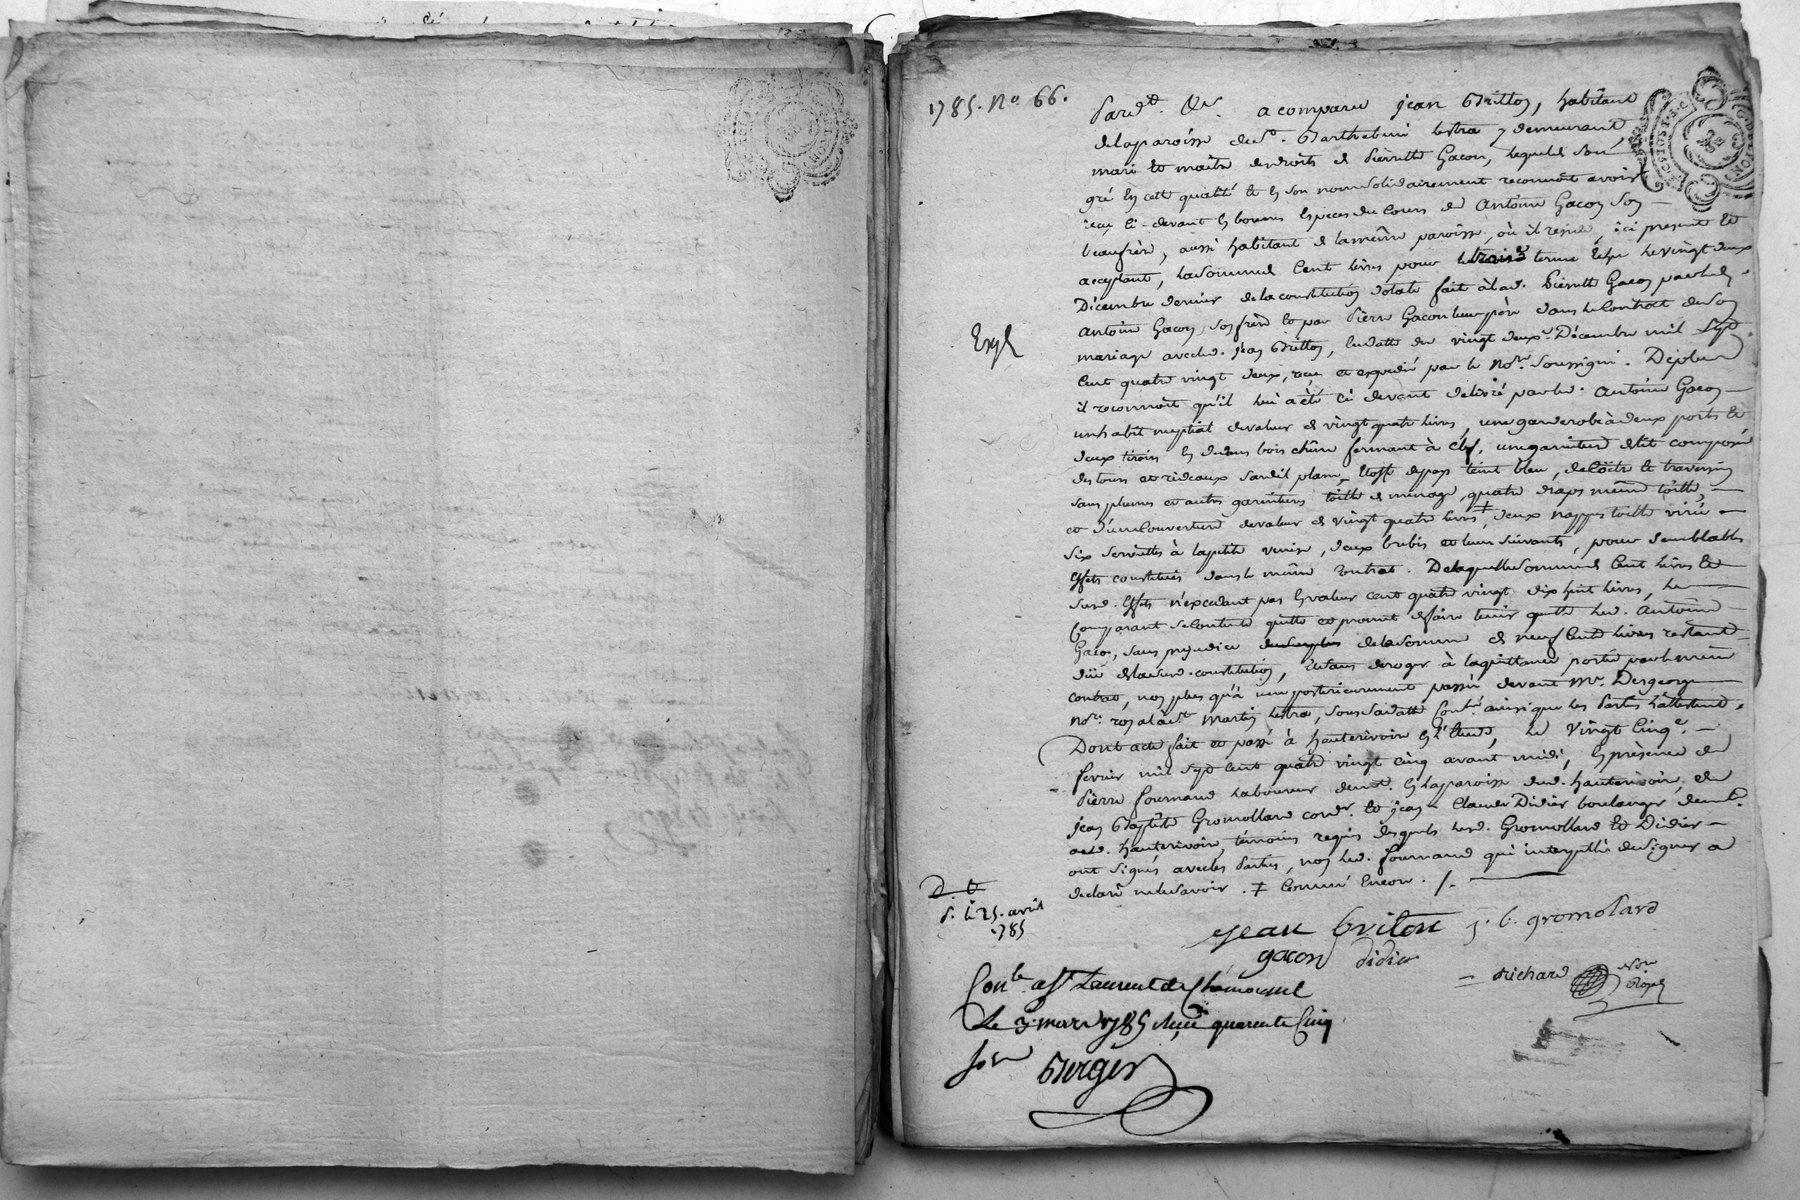 1785. No. 66.
Pard.t &c. a comparu jean Brillon, habitant
de la paroisse de St. Barthelemi lestra y demeurant,
mari et maitre des droits de Pierrette Gacon, lequel de son
gré en cette qualité et en son nom solidairement reconnoit avoir
reçu ci-devant en bonnes especes du cours de Antoine Gacon son
beaufrère, aussi habitant de la même paroisse, où il reside, ici present et
acceptant, la somme de cent livres pour le troise terme echu le vingt deux
Décembre dernier de la constitution dotale fait à lad. Pierrette Gacon par led.
Antoine Gacon, son frère et par Pierre Gacon leur père dans le contrat de son
mariage avec led. jean Brillon, en datte du vingt deux Décembre mil sept
cent quatre vingt deux, reçu et expedié par le Nore. soussigné. De plus
il reconnoit qu'il lui a été ci devant delivré par led. Antoine Gacon
un habit nuptial de valeur de vingt quatre livres, une garderobe à deux ports et
deux tiroirs en dedans bois chêne fermant à clef, une garniture de lit composée
des tours et rideaux étoffe teint bleu, de coëtre et traversin
sans plumes et autres garnitures toille de menage, quatre draps même toille,
et d'une couverture de valeur de vingt quatre livres ‡, deux nappes toille
six serviettes à la petite venise, deux brebis et leur suivants, pour semblables
effets constitués dans le même contrat. De laquelle somme de cent livres et
susd. effets n'excedant pas en valeur cent quatre vingt dix huit livres, le
comparant se contente quitte et promet de faire tenir quitte led. Antoine
Gacon, sans prejudice de la somme de neuf cent livres restant
due de lasusd. constitution, et sans deroger à la quittance portée par le même
contrat, non plus qu'à une posterieurement passée devant Me. Desgeorge
Nore. royal à St. Martin lestra, sous sa datte Conlé. ainsi que les Parties l'attestent.
Dont acte fait et passé à hauterivoire en l'étude, le Vingt Cinqe.
fevrier mil sept cent quatre vingt cinq avant midi, en presence de
Pierre fournand laboureur demt. en la paroisse dud. hauterivoire, de
jean Baptiste Gromollard cordr. et jean Claude Didier boulanger demt.
aud. hauterivoire, témoins requis desquels led. Gromollard et Didier
ont signés avec les Parties, non led. fournand qui interpellé de signer a
declaré ne le savoir. ‡ encore. /.
Exp.
D. t.
S. le 25. avril
1785
jean briton
j. b. gromolard
gacon
didier
Richard Nore Royal
Conle. a St Laurent de Chamousset
Le 3 mars 1785 Reçu quarente Cinq
sols
Berger